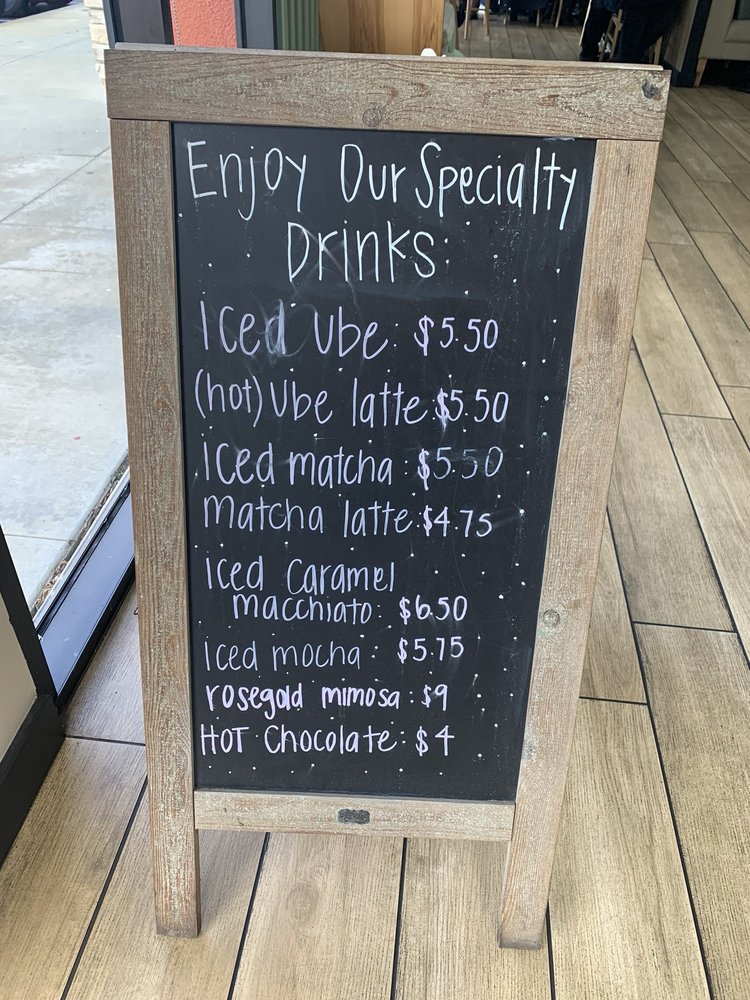 Enjoy Our Specialty
Drinks
Iced Ube: $5.50
(hot) Ube latte: $5.50
Iced matcha: $5.50
Matcha latte: $4.75
Iced Caramel
macchiato: $6.50
Iced mocha: $5.75
rosegold mimosa: $9
HOT Chocolate: $4